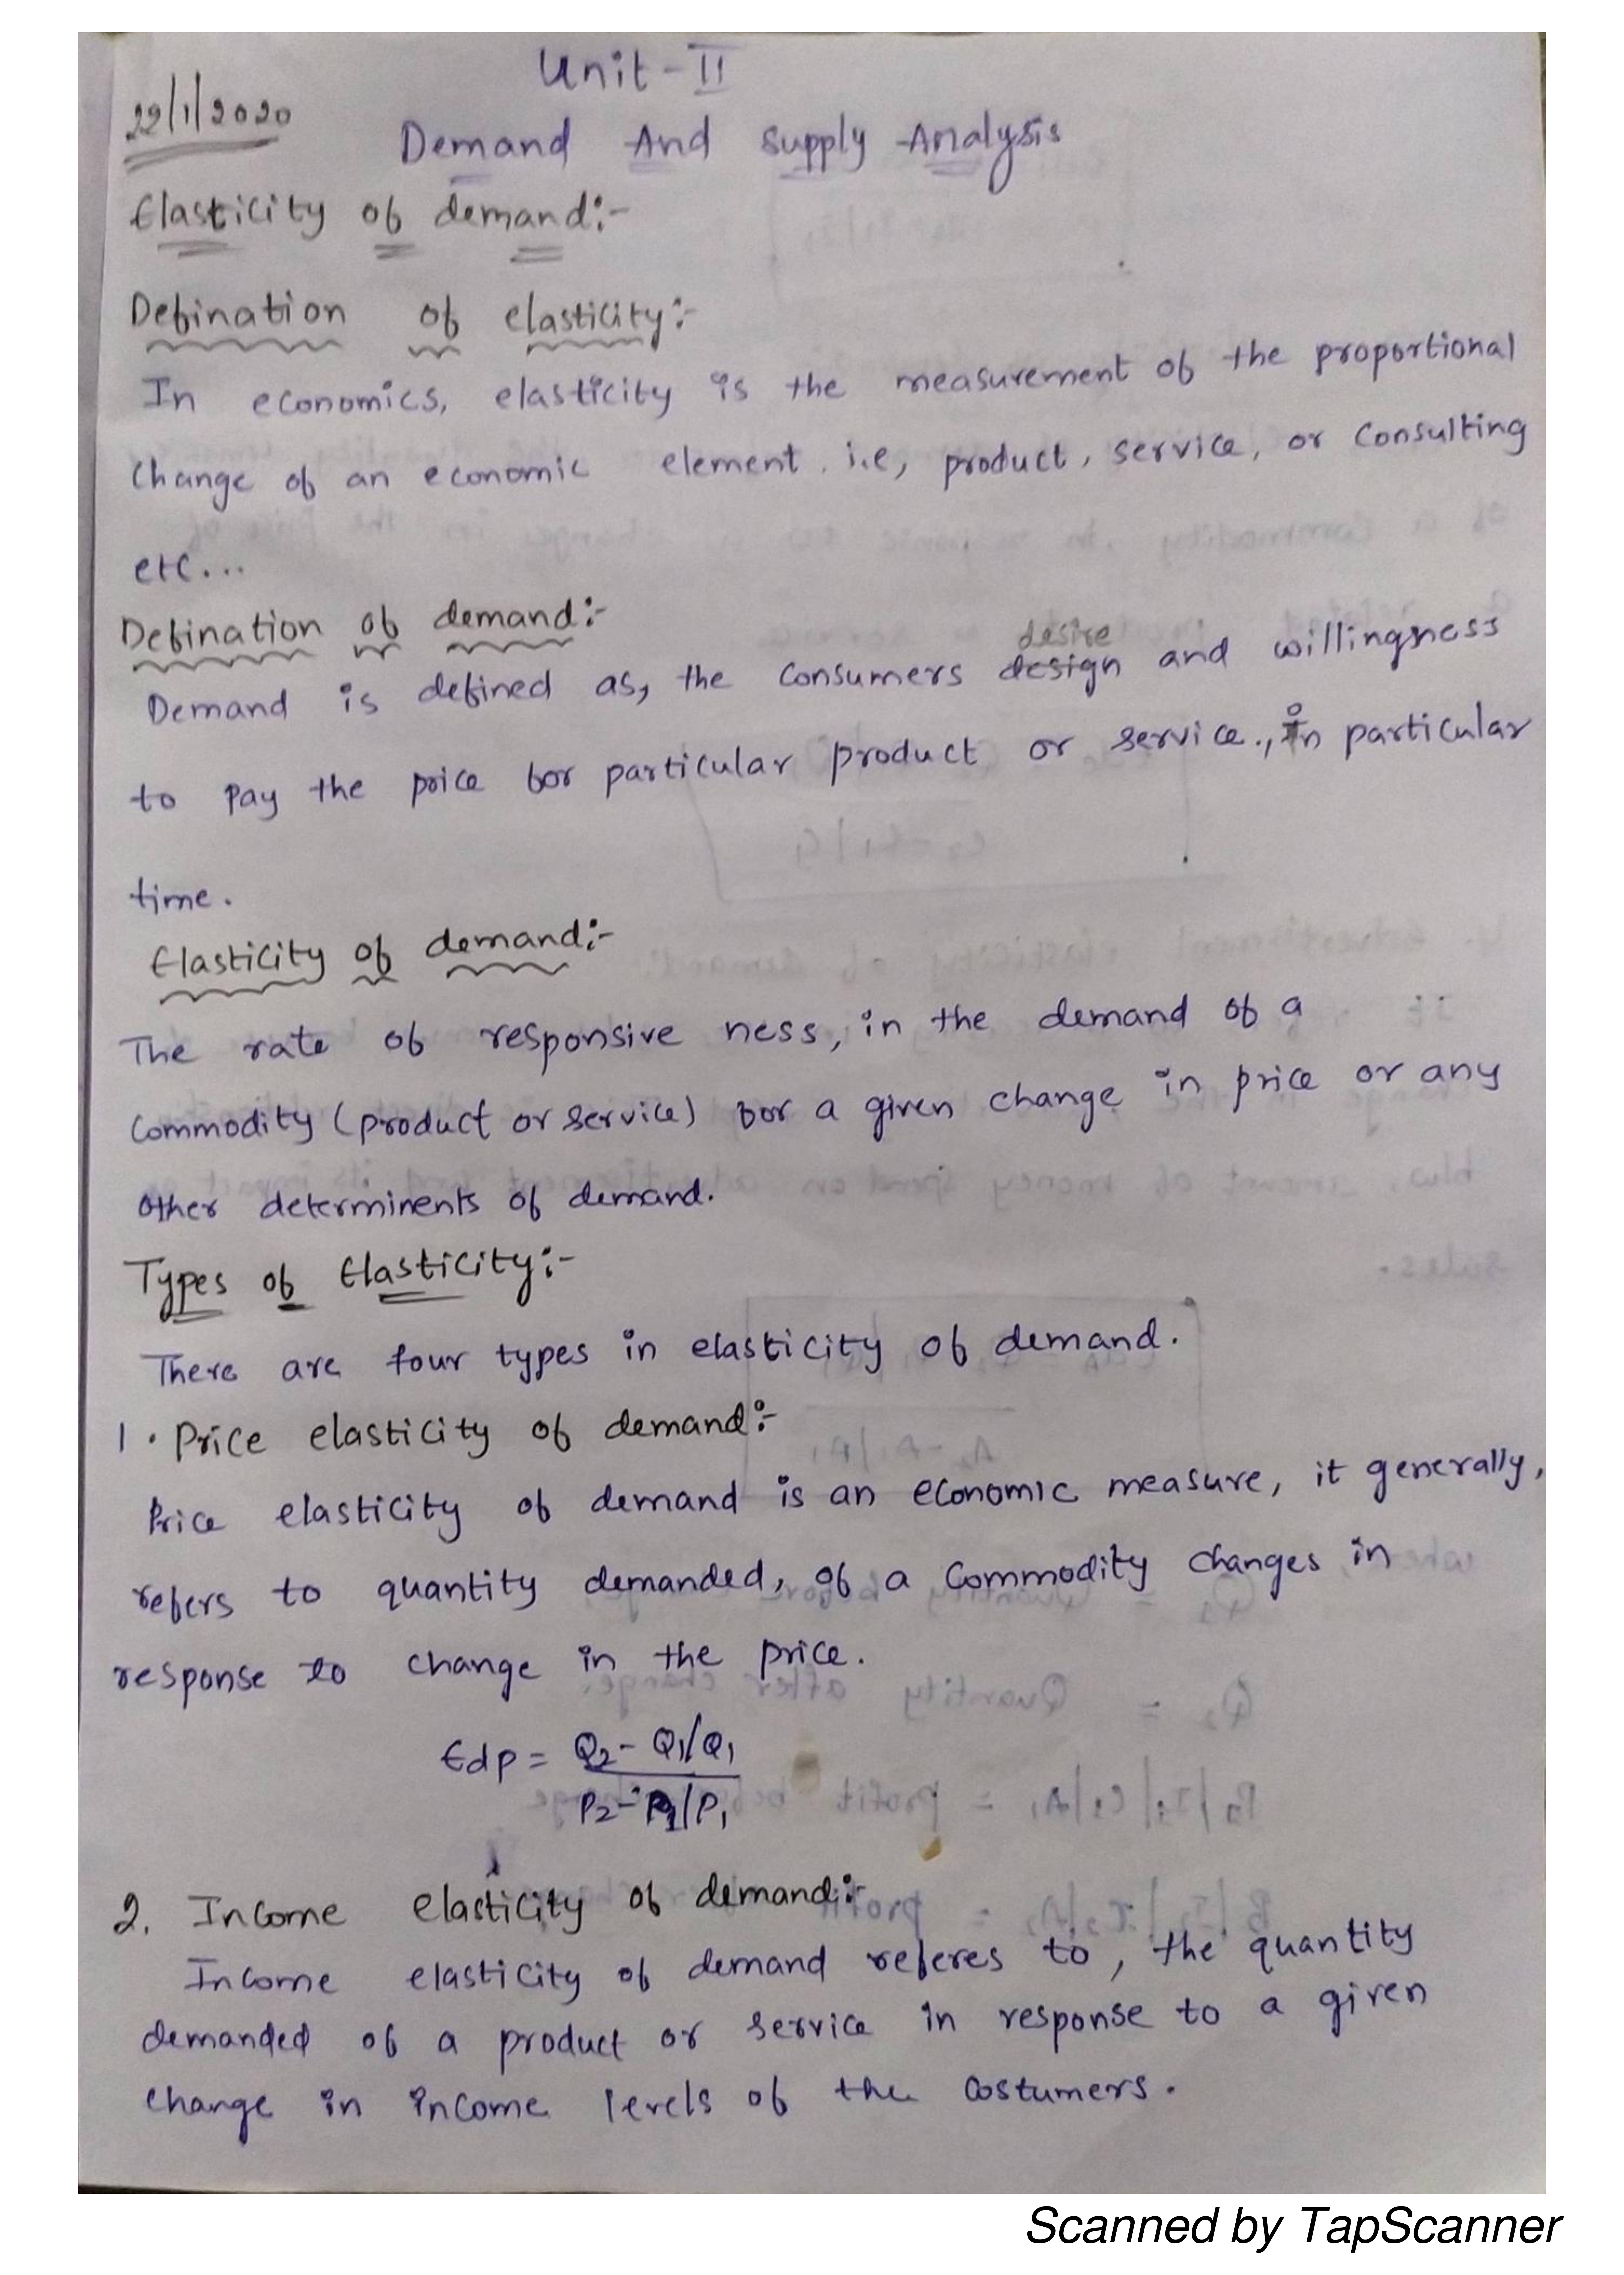 Unit-II
22/1/2020
Demand And Supply Analysis
Elasticity of demand:-
Defination of elasticity:-
In economics, elasticity is the measurement of the proportional
change of an economic element. i.e, product, service, or consulting
etc...
Defination of demand:-
desire
Demand is defined as, the consumers design and willingness
to pay the price for particular product or service., in particular
time.
Elasticity of demand:-
The rate of responsive ness, in the demand of a
commodity (product or service) for a given change in price or any
other determinents of demand.
Types of Elasticity:-
There are four types in elasticity of demand.
1. Price elasticity of demand:-
Price elasticity of demand is an economic measure, it generally,
refers to quantity demanded, of a commodity changes in
response to change in the price.
Edp = Q2 - Q1/Q1
P2 - P1/P1
2. Income elasticity of demand:-
Income elasticity of demand referes to, the quantity
demanded of a product or service in response to a given
change in income levels of the costumers.
Scanned by TapScanner